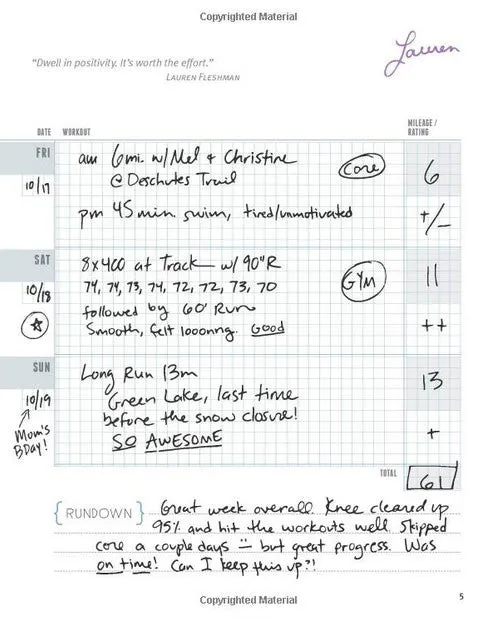 Copyrighted Material
"Dwell in positivity. It's worth the effort."
LAUREN FLESHMAN
Lauren
DATE WORKOUT MILEAGE / RATING
FRI
10/17
am 6mi. w/ Mel + Christine
@ Deschutes Trail
Core
6
pm 45 min. swim, tired/unmotivated
+/-
SAT
10/18
8x400 at Track w/ 90"R
74, 74, 73, 74, 72, 72, 73, 70
followed by 60' Run
Smooth, felt looonng. Good
GYM
11
++
SUN
10/19
Mom's
BDay!
Long Run 13m
Green Lake, last time
before the snow closure!
SO AWESOME
13
+
TOTAL 61
{RUNDOWN} Great week overall. Knee cleared up
95% and hit the workouts well. Skipped
core a couple days but great progress. Was
on time! Can I keep this up?!
5
Copyrighted Material